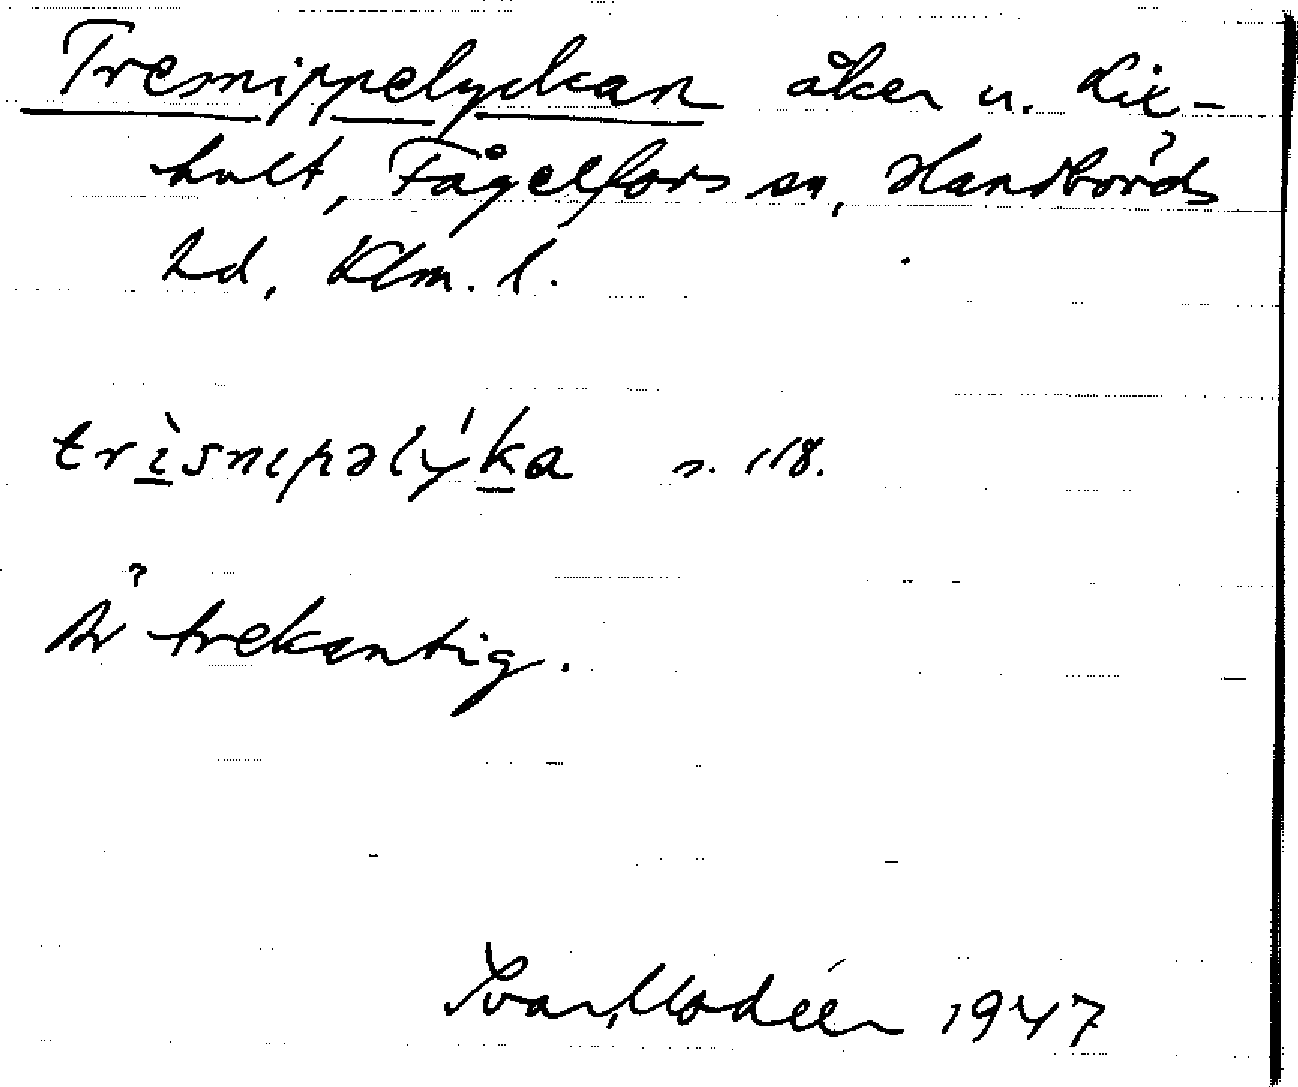 Tresnippelyckan åker u. Lix-
hult, Fågelfors sn, Handbörds
hd, Klm. l.
trìsnıpəlýka s. 118.
Är trekantig.
Ivar Modéer 1947